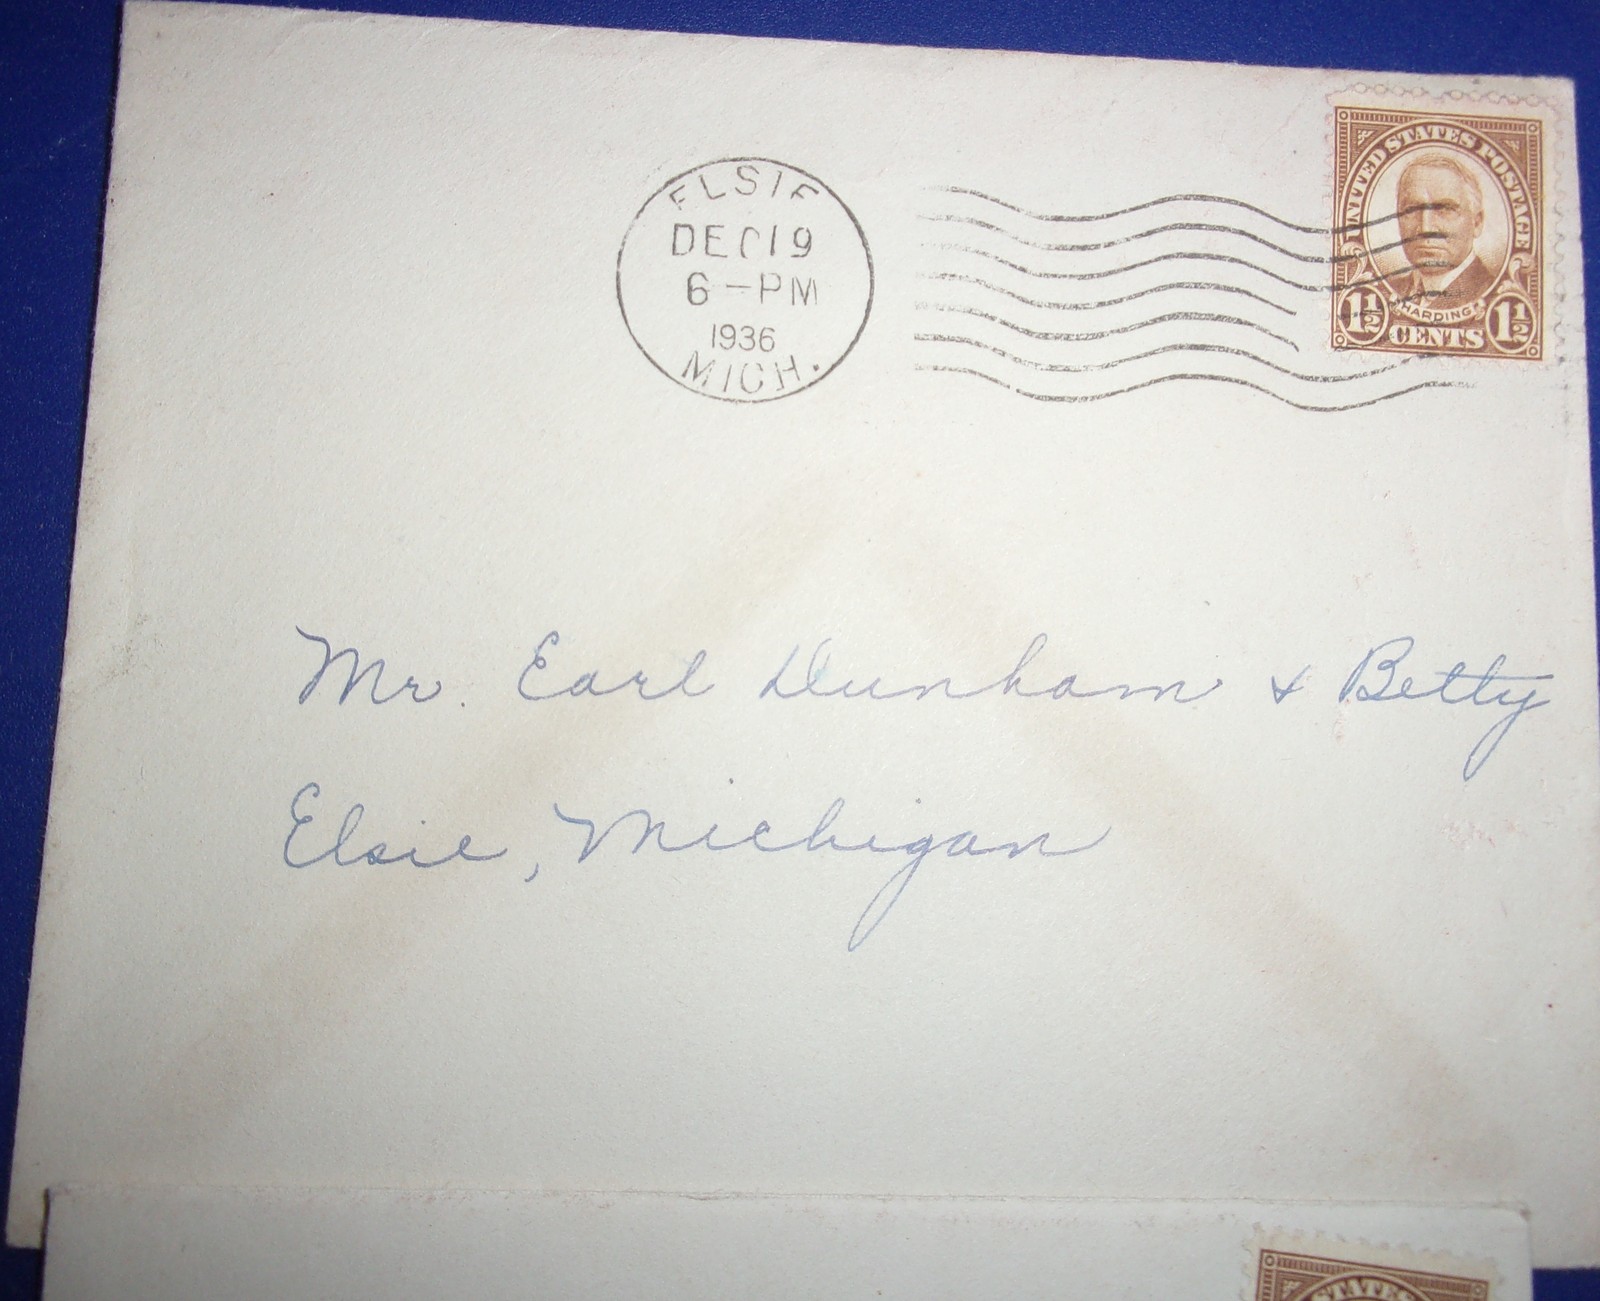 ELSIE
DEC 19
6-PM
1936
MICH.
UNITED STATES POSTAGE
HARDING
1½ CENTS 1½
Mr. Earl Dunham & Betty
Elsie, Michigan
STATES